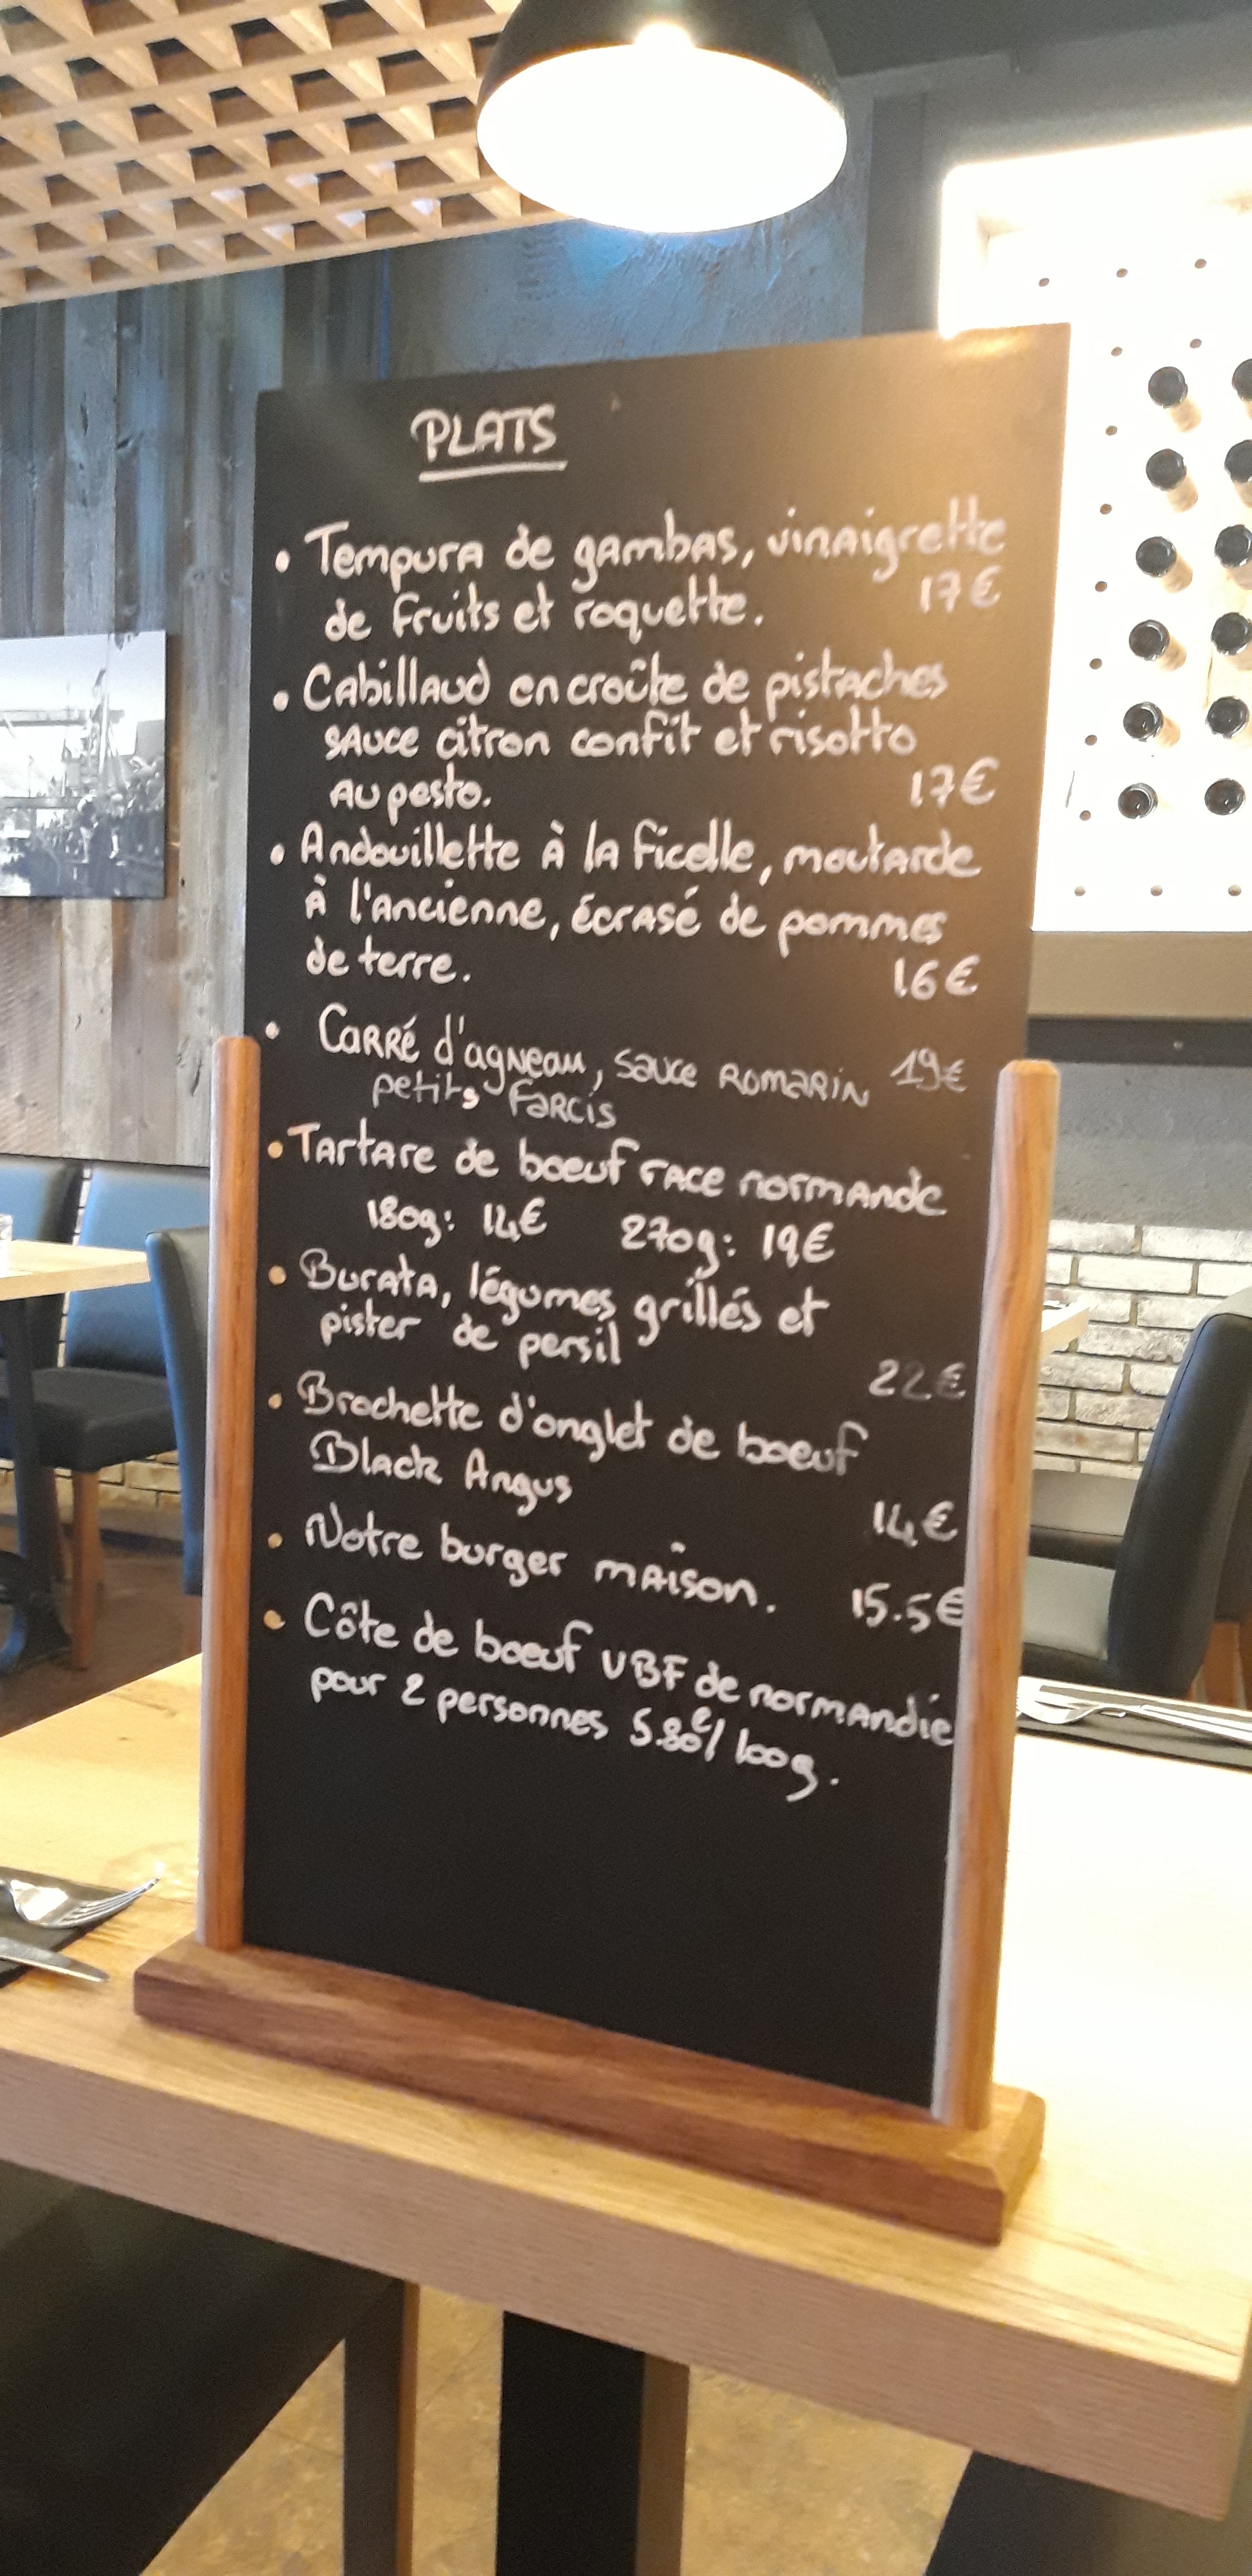 PLATS
• Tempura de gambas, vinaigrette
de fruits et roquette. 17€
• Cabillaud en croûte de pistaches
sauce citron confit et risotto
au pesto. 17€
• Andouillette à la ficelle, moutarde
à l'ancienne, écrasé de pommes
de terre. 16€
• Carré d'agneau, sauce romarin 19€
petits farcis
• Tartare de boeuf race normande
180g: 14€ 270g: 19€
• Burata, légumes grillés et
pister de persil
22€
• Brochette d'onglet de boeuf
Black Angus
14€
• Notre burger maison. 15.5€
• Côte de boeuf VBF de normandie
pour 2 personnes 5.80€/100g.